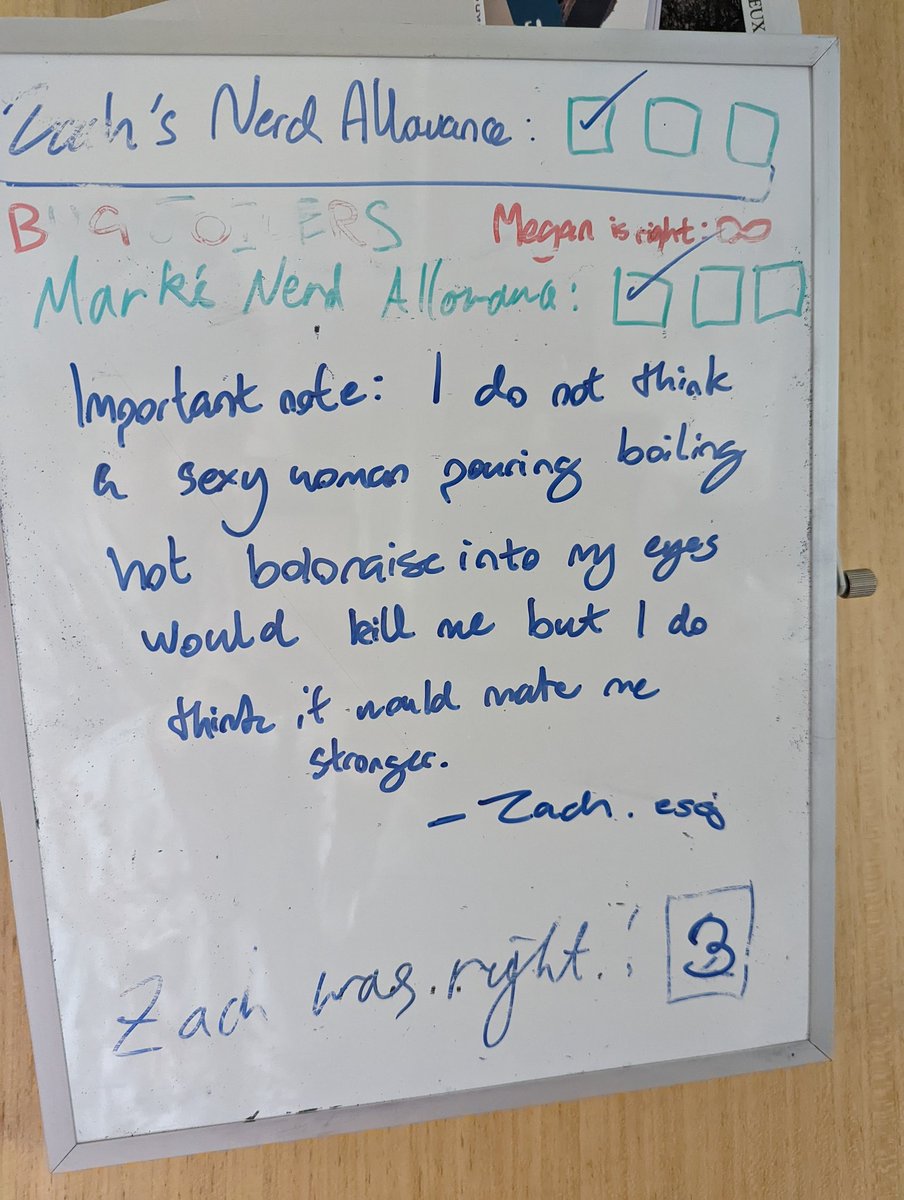 Zach's Nerd Allowance:
BUG JOILERS
Megan is right: ∞
Mark's Nerd Allowance:
Important note: I do not think
a sexy woman pouring boiling
hot bolonaise into my eyes
would kill me but I do
think it would make me
stronger.
- Zach. esq
Zach was right! 3
EUX